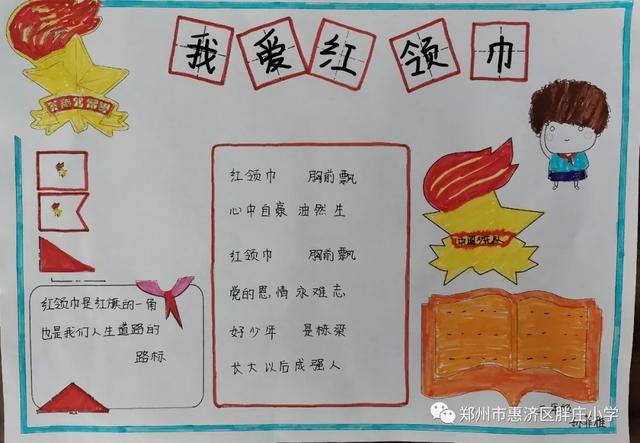 我爱红领巾
红领巾 胸前飘
心中自豪 油然生
红领巾 胸前飘
党的恩情 永难忘
好少年 是栋梁
长大以后成强人
红领巾是红旗的一角
也是我们人生道路的
路标
中国少先队
郑州市惠济区胖庄小学